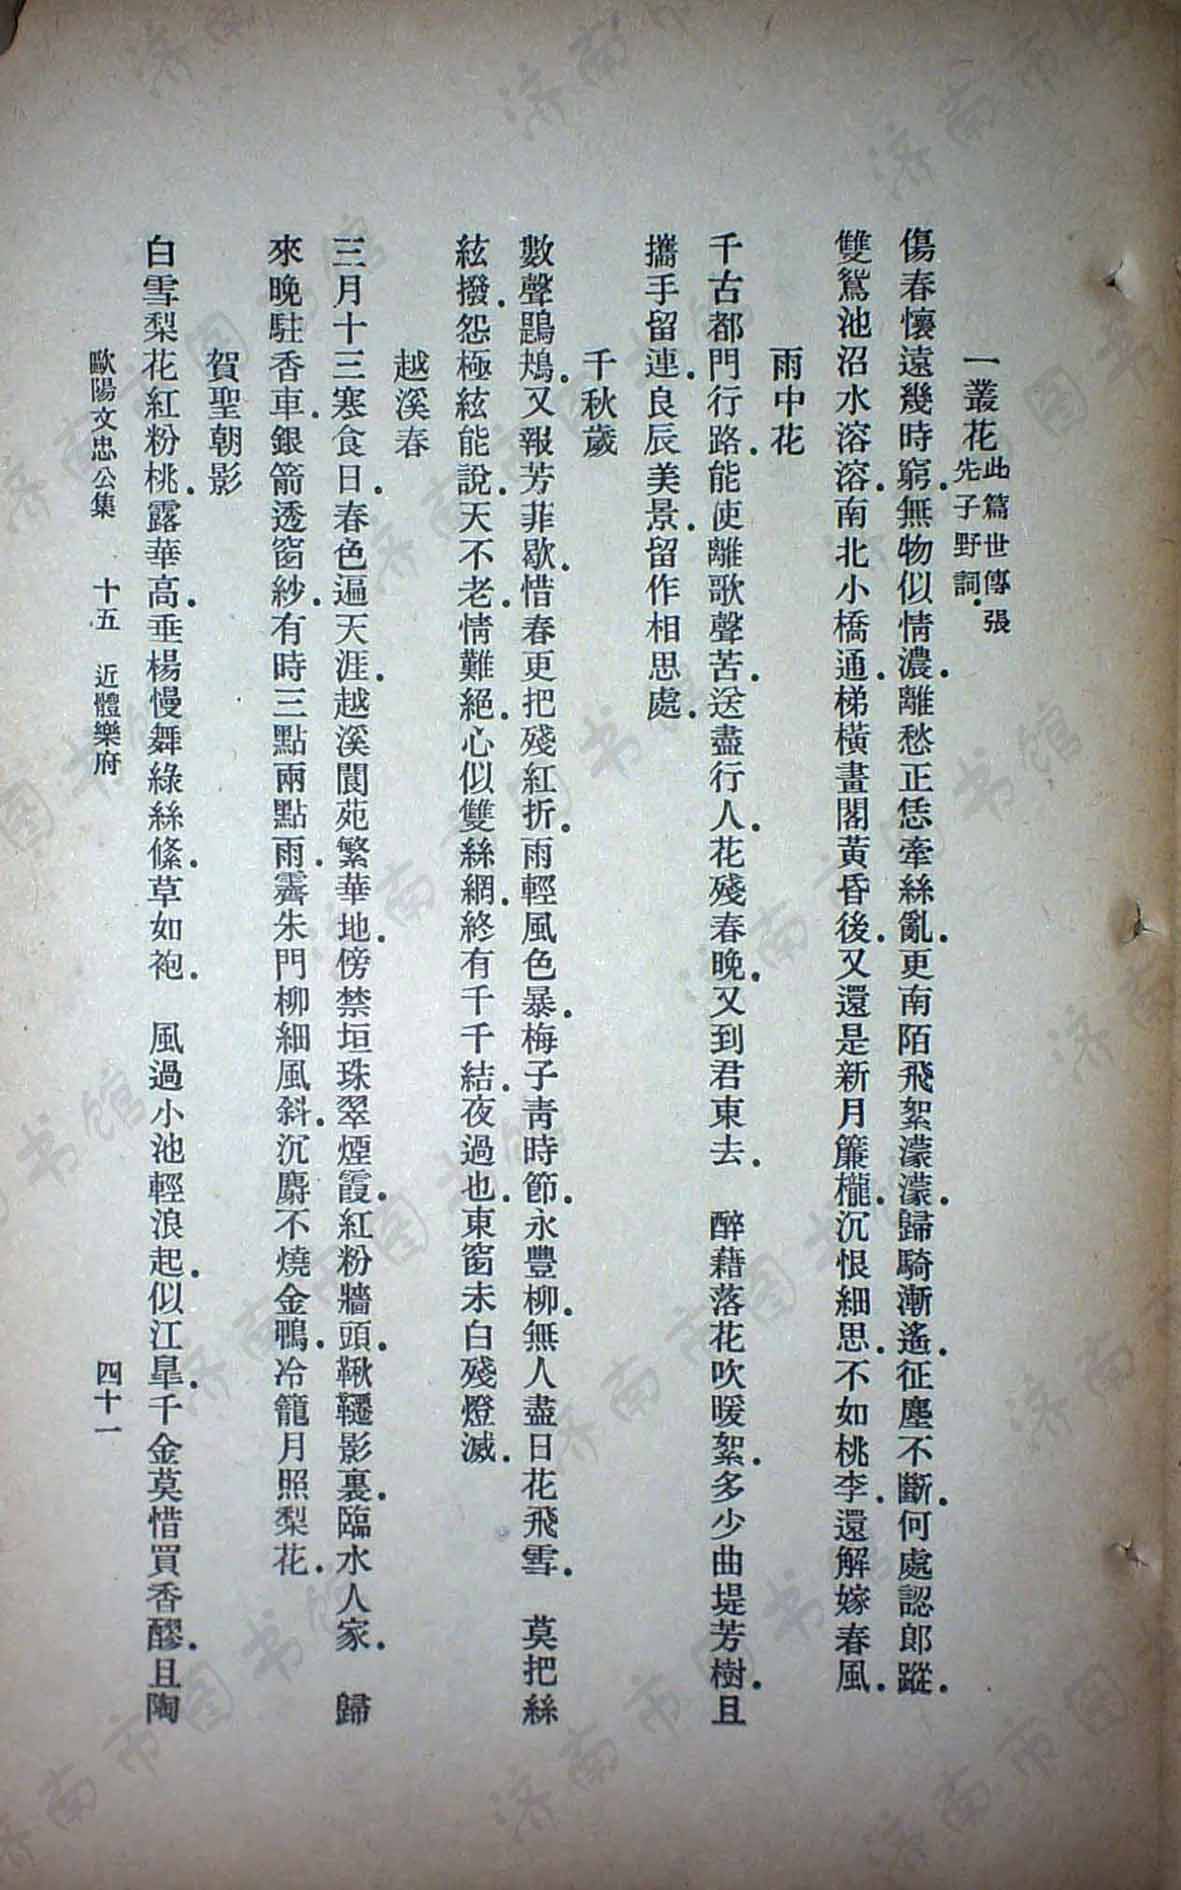 一叢花此篇世傳張先子野詞.
傷春懷遠幾時窮.無物似情濃.離愁正恁牽絲亂.更南陌飛絮濛濛.歸騎漸遙.征塵不斷.何處認郎蹤.
雙鴛池沼水溶溶.南北小橋通.梯橫畫閣黃昏後.又還是新月簾櫳.沉恨細思.不如桃李.還解嫁春風.
雨中花
千古都門行路.能使離歌聲苦.送盡行人.花殘春晚.又到君東去. 醉藉落花吹暖絮.多少曲堤芳樹.且
攜手留連.良辰美景.留作相思處.
千秋歲
數聲鶗鴂.又報芳菲歇.惜春更把殘紅折.雨輕風色暴.梅子青時節.永豐柳.無人盡日花飛雪. 莫把絲
絃撥.怨極絃能說.天不老.情難絕.心似雙絲網.終有千千結.夜過也.東窗未白殘燈滅.
越溪春
三月十三寒食日.春色遍天涯.越溪閬苑繁華地.傍禁垣珠翠煙霞.紅粉牆頭.鞦韆影裏.臨水人家. 歸
來晚駐香車.銀箭透窗紗.有時三點兩點雨.霽朱門柳細風斜.沉麝不燒金鴨.冷籠月照梨花.
賀聖朝影
白雪梨花紅粉桃.露華高.垂楊慢舞綠絲絛.草如袍. 風過小池輕浪起.似江皐.千金莫惜買香醪.且陶
歐陽文忠公集 十五 近體樂府 四十一
济南市图书馆